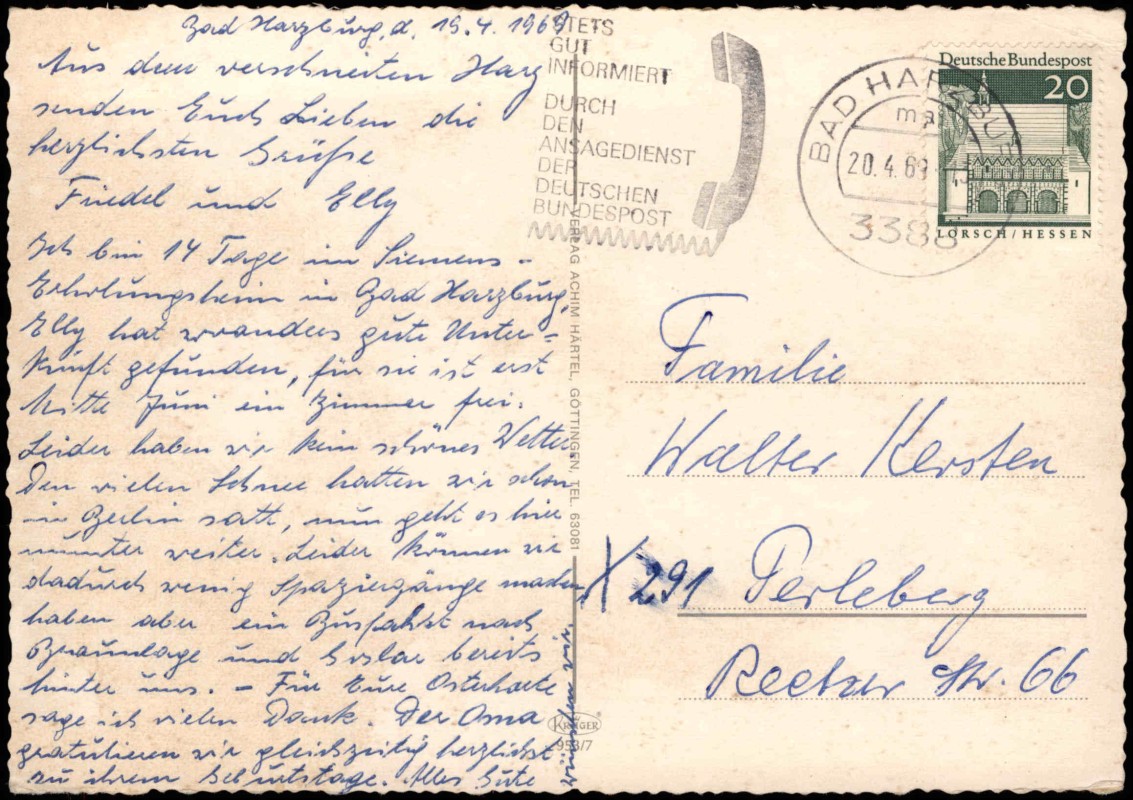 Bad Harzburg, d. 19.4.1969
Aus dem verschneiten Harz
senden Euch Lieben die
herzlichsten Grüße
Friedel und Elly
Ich bin 14 Tage im Siemens-
Erholungsheim in Bad Harzburg,
Elly hat woanders gute Unter=
kunft gefunden, für sie ist erst
Mitte Juni ein Zimmer frei.
Leider haben wir kein schönes Wetter
Den vielen Schnee hatten wir schon
in Berlin satt, nun geht es hier
munter weiter. Leider können wir
dadurch wenig Spaziergänge machen
haben aber ein Busfahrt nach
Braunlage und Goslar bereits
hinter uns. – Für Eure Osterkarte
sage ich vielen Dank. Der Oma
gratulieren wir gleichzeitig herzlichst
zu ihrem Geburtstage. Alles Gute
STETS
GUT
INFORMIERT
DURCH
DEN
ANSAGEDIENST
DER
DEUTSCHEN
BUNDESPOST
BAD HARZBURG
ma
20.4.69
3388
Deutsche Bundespost
20
LORSCH/HESSEN
VERLAG ACHIM HÄRTEL, GÖTTINGEN, TEL. 63081
KRÜGER
953/7
Familie
Walter Kersten
X 291 Perleberg
Reetzer Str. 66